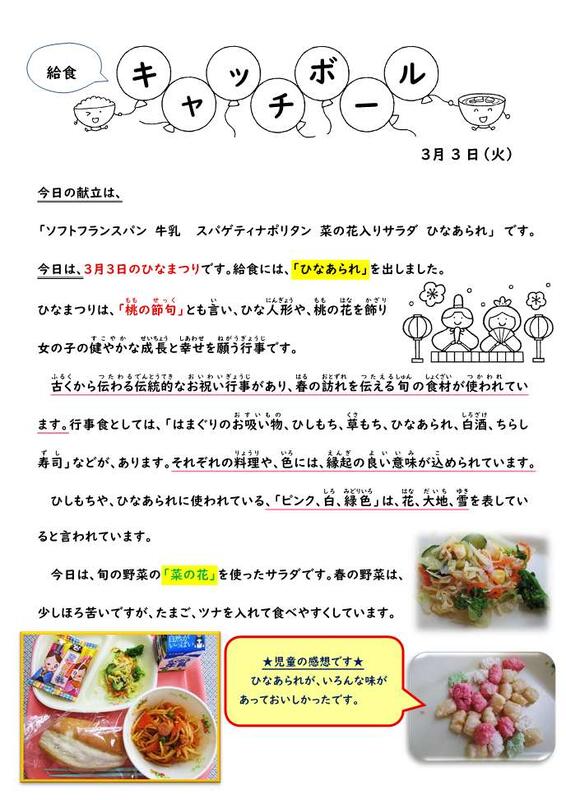 給食
キャッチボール
3月3日(火)
今日の献立は、
「ソフトフランスパン 牛乳 スパゲティナポリタン 菜の花入りサラダ ひなあられ」 です。
今日は、3月3日のひなまつりです。給食には、「ひなあられ」を出しました。
ひなまつりは、「桃の節句」とも言い、ひな人形や、桃の花を飾り
女の子の健やかな成長と幸せを願う行事です。
古くから伝わる伝統的なお祝い行事があり、春の訪れを伝える旬の食材が使われてい
ます。行事食としては、「はまぐりのお吸い物、ひしもち、草もち、ひなあられ、白酒、ちらし
寿司」などが、あります。それぞれの料理や、色には、縁起の良い意味が込められています。
ひしもちや、ひなあられに使われている、「ピンク、白、緑色」は、花、大地、雪を表してい
ると言われています。
今日は、旬の野菜の「菜の花」を使ったサラダです。春の野菜は、
少しほろ苦いですが、たまご、ツナを入れて食べやすくしています。
★児童の感想です★
ひなあられが、いろんな味が
あっておいしかったです。